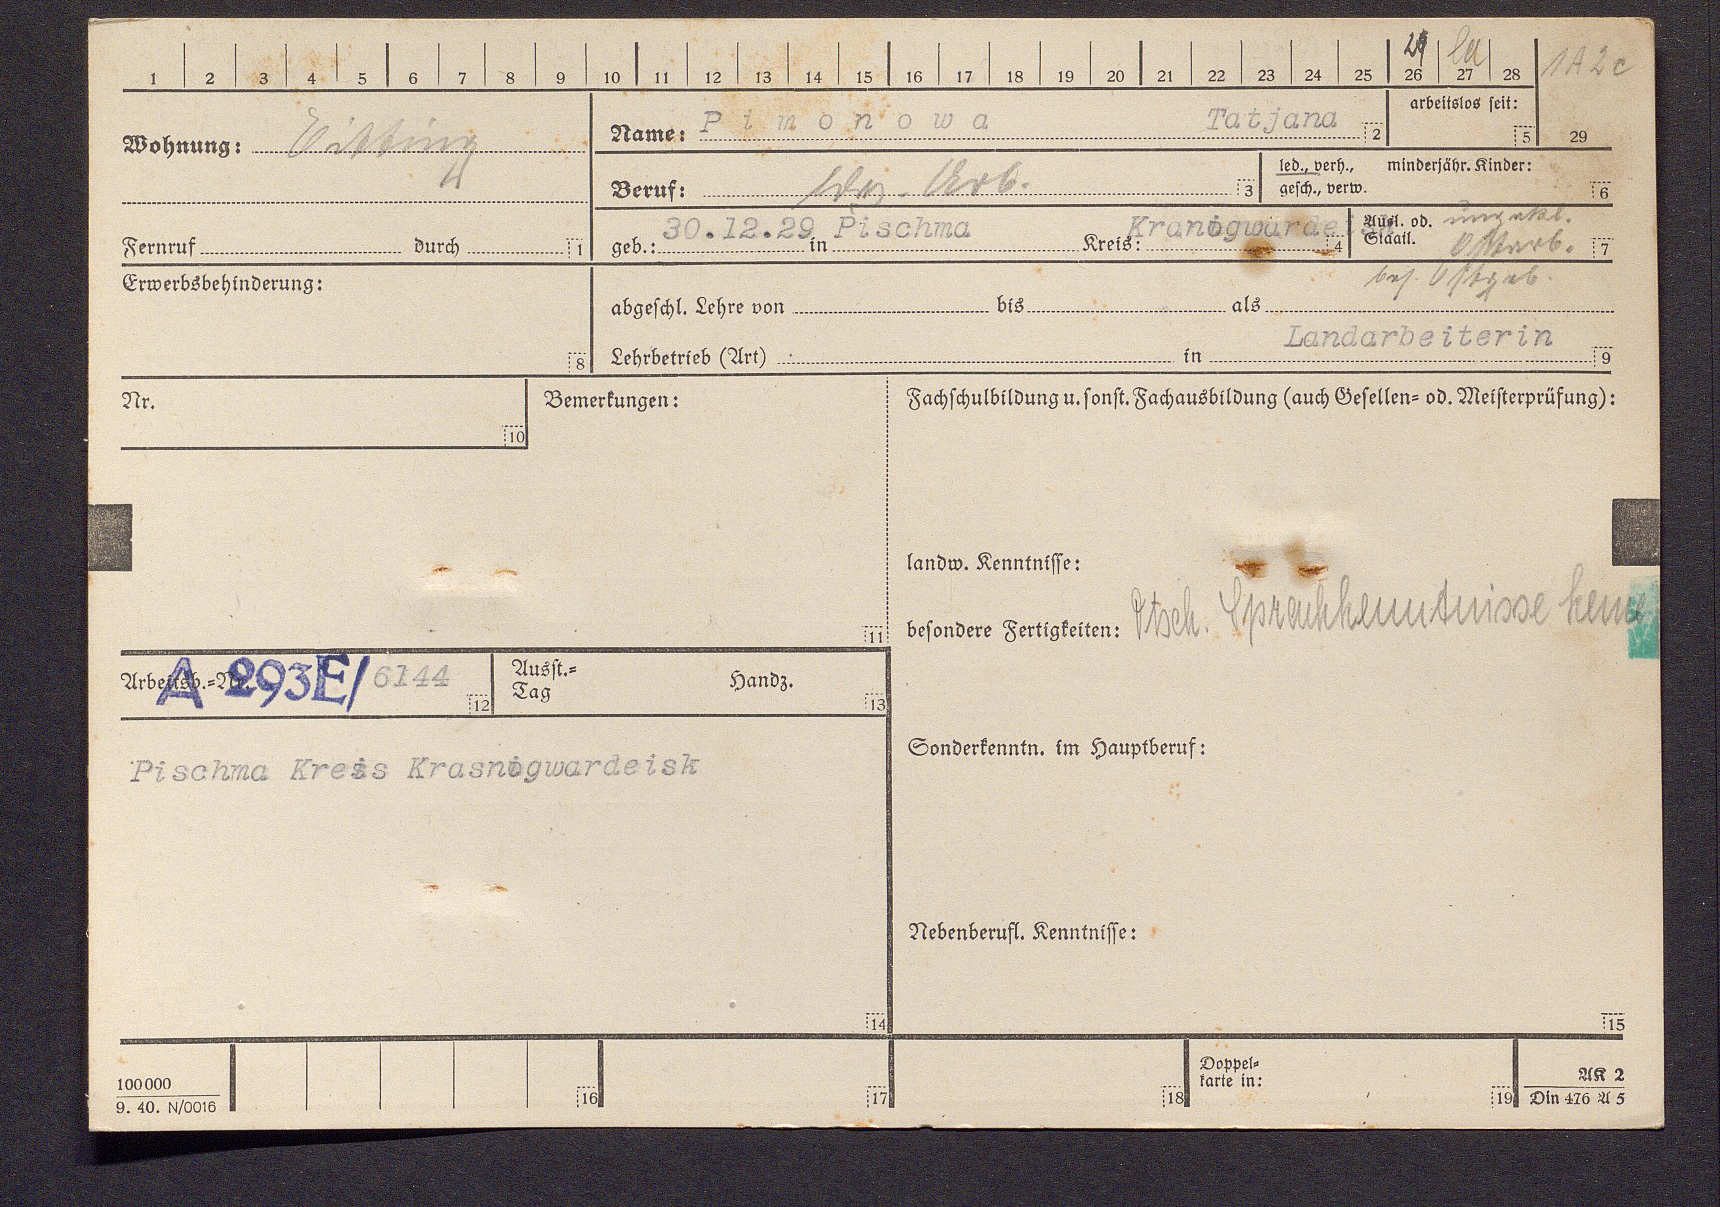 1 2 3 4 5 6 7 8 9 10 11 12 13 14 15 16 17 18 19 20 21 22 23 24 25 26 27 28 1A2c
arbeitslos seit:
Wohnung:
Name: Pimonowa Tatjana 2 5 29
Beruf: 3 led., verh., minderjähr. Kinder:
gesch., verw. 6
Fernruf durch 1
geb.: 30.12.29 in Pischma Kreis: Kranogwardeisk 4
Ausl. od.
Staatl. ungekl.
Ostarb. 7
bes. Ostgeb.
Erwerbsbehinderung:
8
abgeschl. Lehre von bis als
Landarbeiterin
Lehrbetrieb (Art) in 9
Nr.
10
Bemerkungen:
11
Fachschulbildung u. sonst. Fachausbildung (auch Gesellen- od. Meisterprüfung):
landw. Kenntnisse:
besondere Fertigkeiten: Dtsch. Sprachkenntnisse keine
Arbeitsb.-Nr. A 293E/6144 12
Ausst.-
Tag
Handz.
13
Pischma Kreis Krasnogwardeisk
14
Sonderkenntn. im Hauptberuf:
Nebenberufl. Kenntnisse:
15
100000
9. 40. N/0016
16 17 18
Doppel-
karte in:
19
AK 2
Din 476 A 5